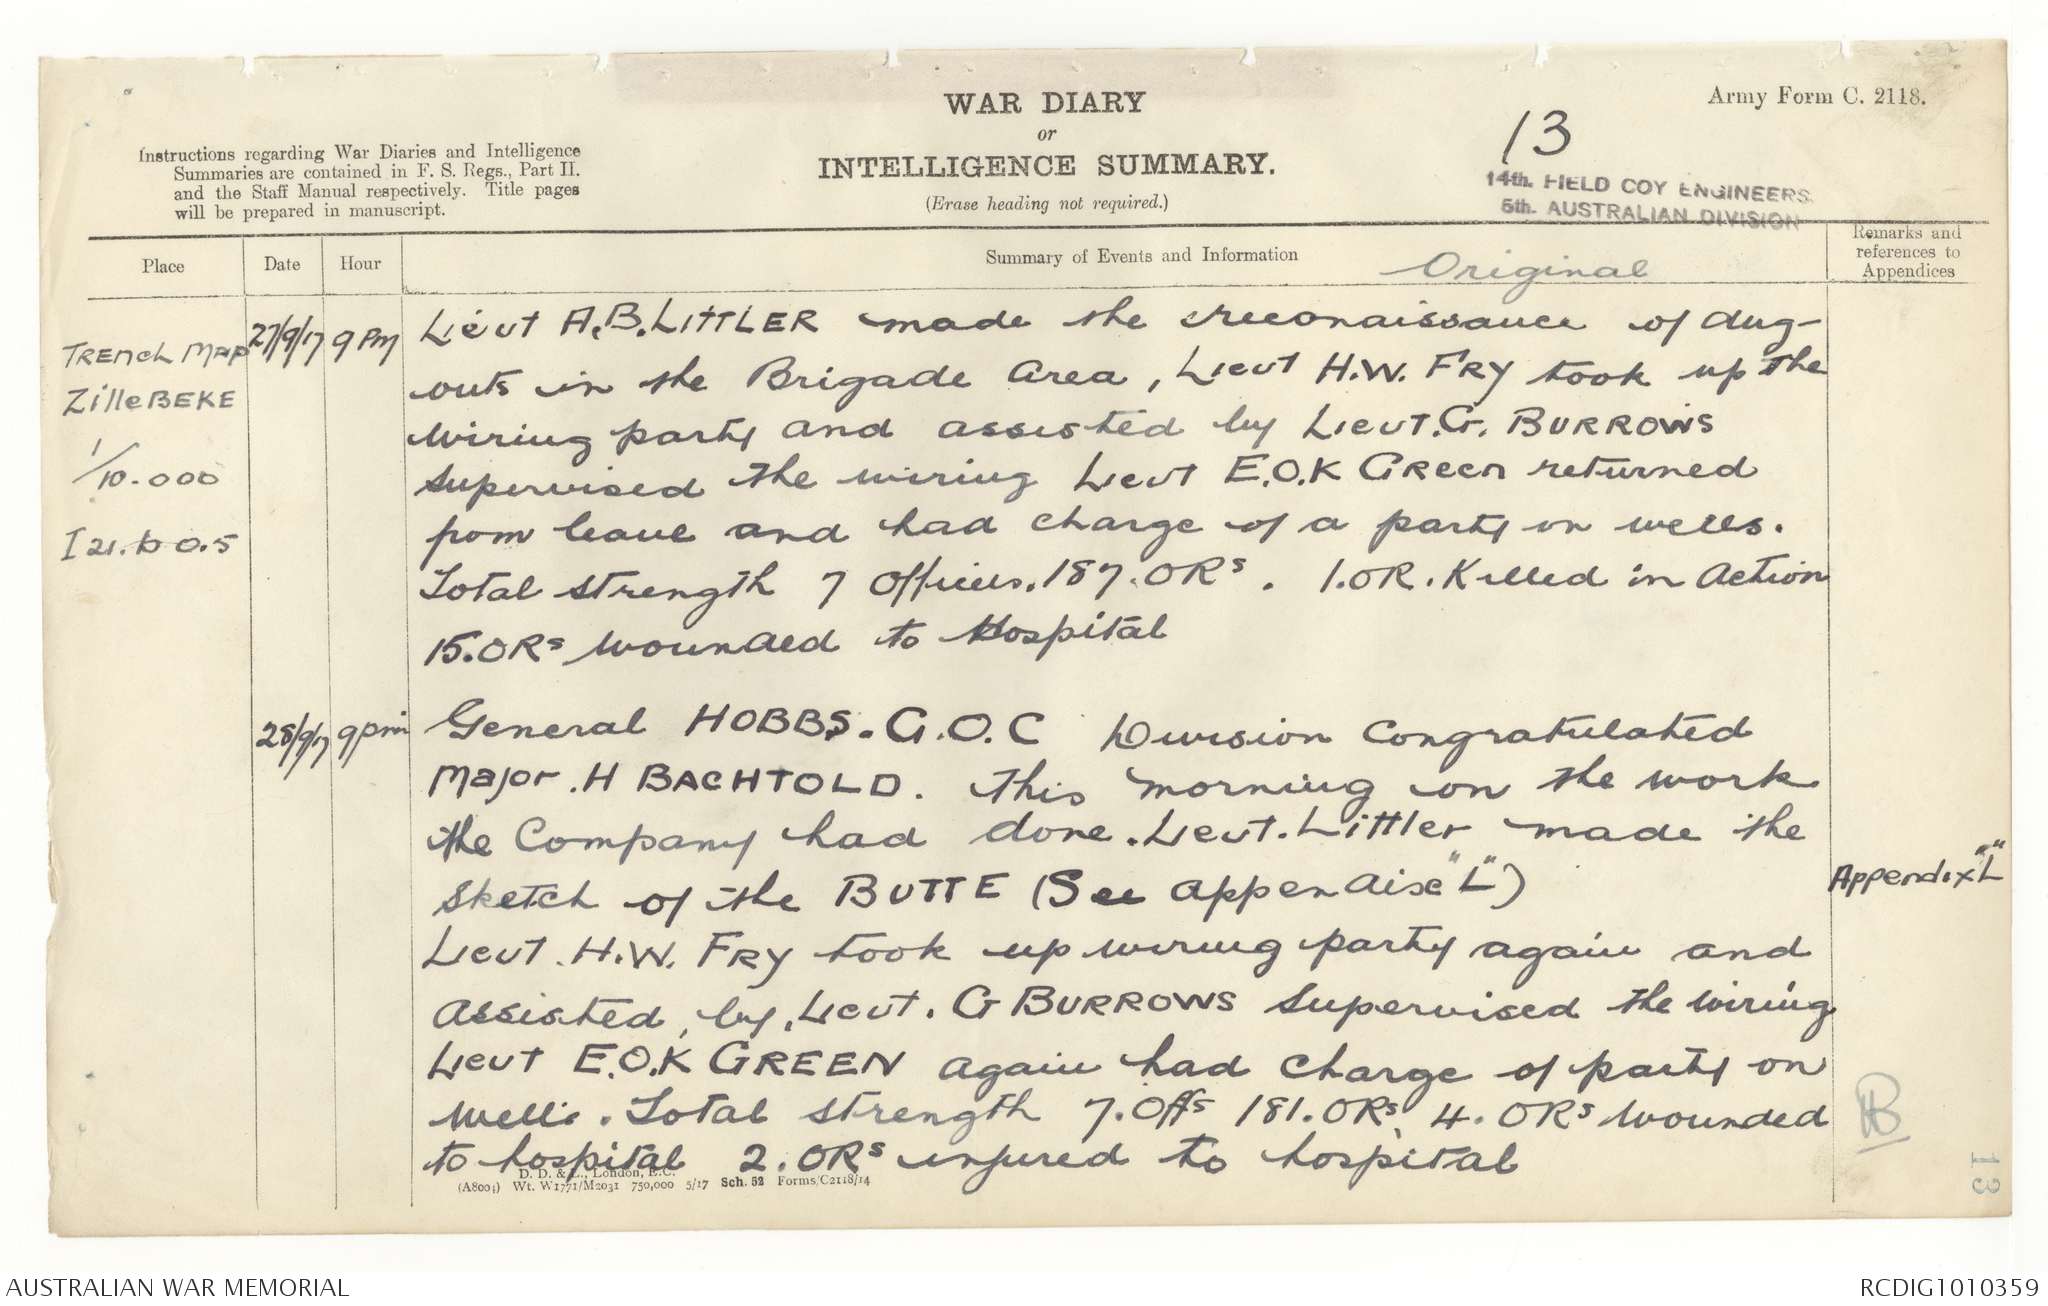 WAR DIARY
or
INTELLIGENCE SUMMARY.
(Erase heading not required.)
Army Form C. 2118.
Instructions regarding War Diaries and Intelligence
Summaries are contained in F. S. Regs., Part II.
and the Staff Manual respectively. Title pages
will be prepared in manuscript.
13
14th. FIELD COY ENGINEERS.
5th. AUSTRALIAN DIVISION
Place
Date
Hour
Summary of Events and Information
Original
Remarks and
references to
Appendices
TRENCH MAP
ZilleBEKE
1/10.000
I 21.b 0.5
27/9/17 9 PM
Lieut A.B. LITTLER made the reconaissance of dug-
outs in the Brigade Area, Lieut H.W. FRY took up the
wiring party and assisted by Lieut. G. BURROWS
supervised the wiring Lieut E.O.K GREEN returned
from leave and had charge of a party on wells.
Total strength 7 Officers. 187. ORs. 1. OR. Killed in Action
15. ORs wounded to Hospital
28/9/17 9 pm
General HOBBS. G.O.C Division Congratulated
Major. H BACHTOLD. this morning on the work
the Company had done. Lieut. Littler made the
sketch of the BUTTE (See appendix "L")
Appendix "L"
Lieut. H.W. FRY took up wiring party again and
assisted, by, Lieut. G BURROWS supervised the wiring
Lieut E.O.K GREEN again had charge of party on
wells. Total strength 7. Offs 181. ORs, 4. ORs wounded
to hospital 2. ORs injured to hospital
HB
13
D. D. & L., London, E.C.
(A8004) Wt. W1771/M2031 750,000 5/17 Sch. 52 Forms/C2118/14
AUSTRALIAN WAR MEMORIAL
RCDIG1010359